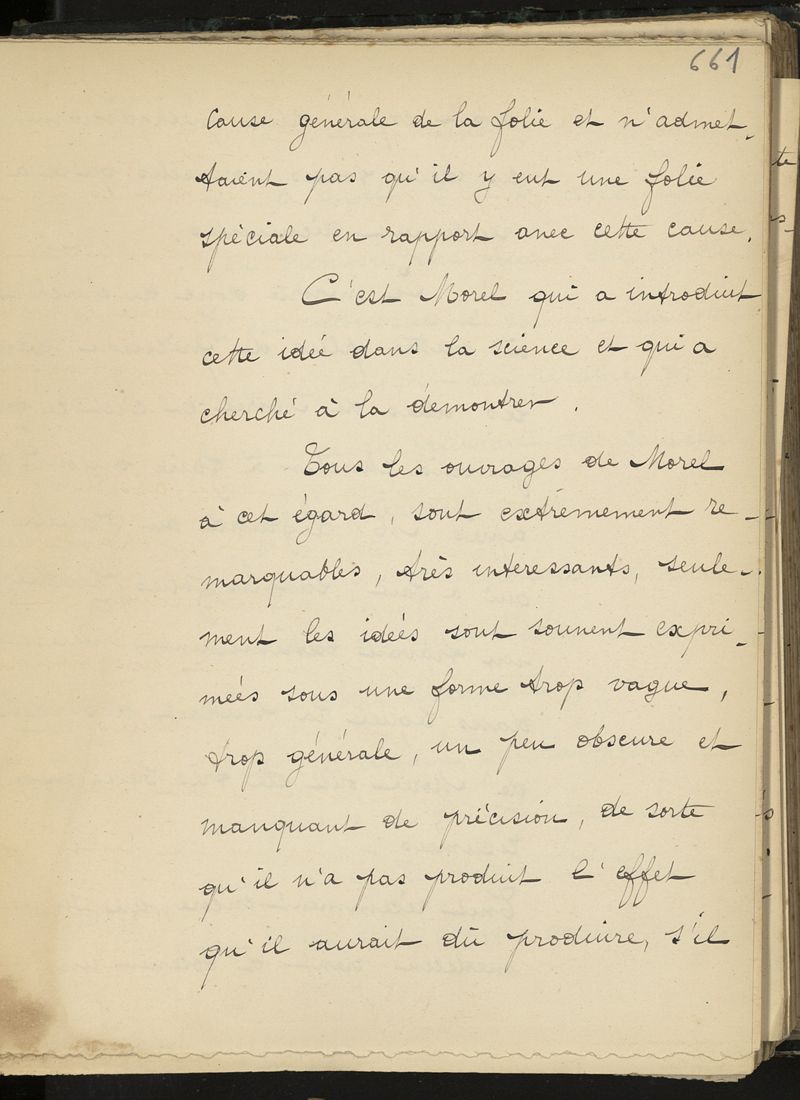 661
Cause générale de la folie et n'admet-
taient pas qu'il y eut une folie
spéciale en rapport avec cette cause.
C'est Morel qui a introduit
cette idée dans la science et qui a
cherché à la démontrer.
Tous les ouvrages de Morel
à cet égard, sont extrêmement re-
marquables, très intéressants, seule-
ment les idées sont souvent expri-
mées sous une forme trop vague,
trop générale, un peu obscure et
manquant de précision, de sorte
qu'il n'a pas produit l'effet
qu'il aurait dû produire, s'il